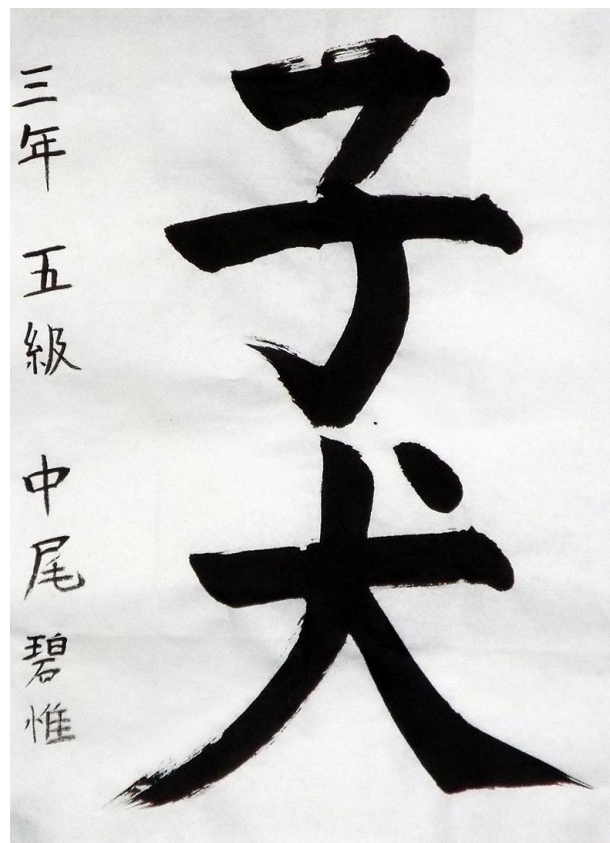 子犬
三年 五級 中尾 碧惟